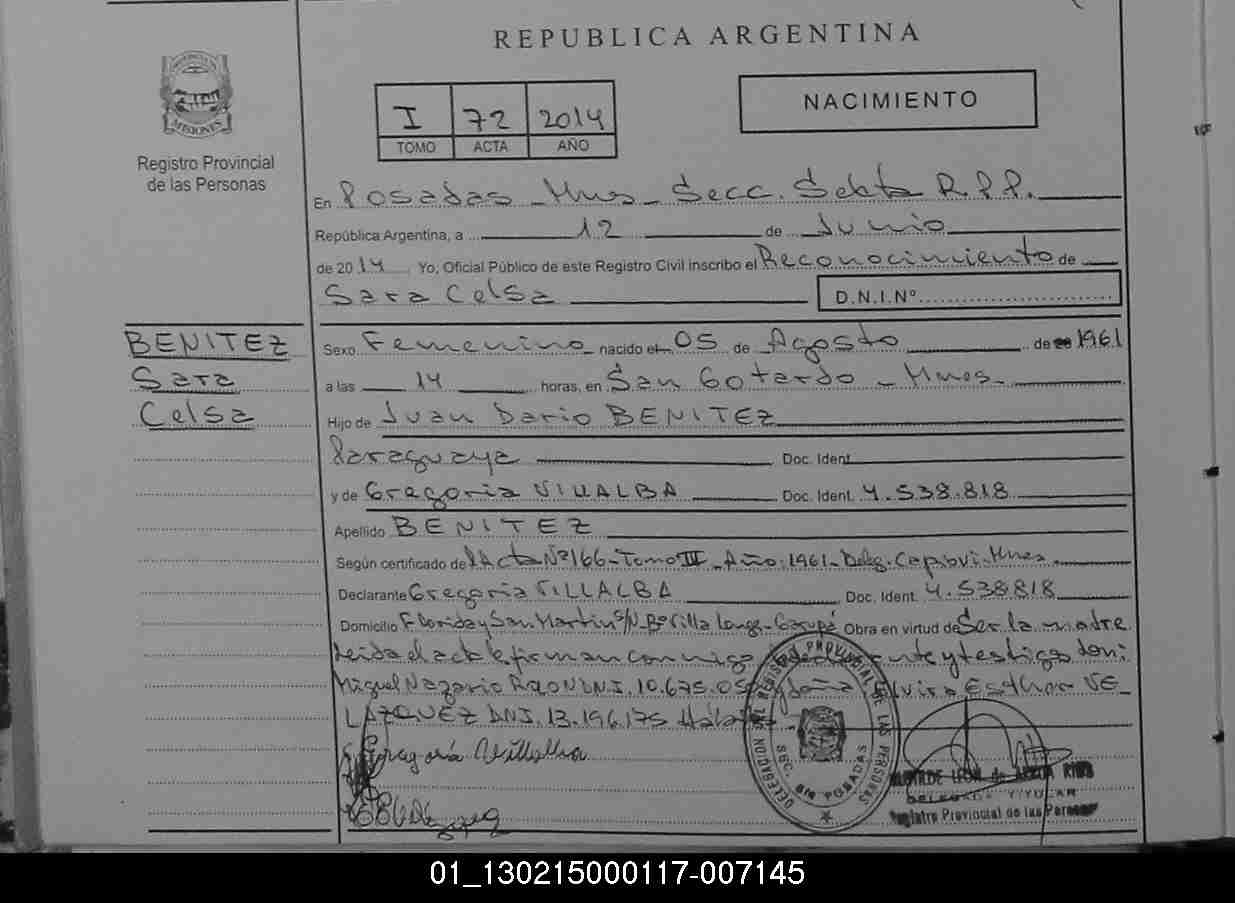 REPUBLICA ARGENTINA
PROVINCIA DE
MISIONES
Registro Provincial
de las Personas
I 72 2014
TOMO ACTA AÑO
NACIMIENTO
En Posadas - Mnes - Secc. Sexta R.P.P.
República Argentina, a 12 de Junio
de 2014 Yo, Oficial Público de este Registro Civil inscribo el Reconocimiento de
Sara Celsa D.N.I.Nº
BENITEZ
Sara
Celsa
Sexo Femenino nacido el 05 de Agosto de 1961
a las 14 horas, en San Gotardo - Mnes.
Hijo de Juan Dario BENITEZ
Paraguaya Doc. Ident.
y de Gregoria VILLALBA Doc. Ident. 4.538.818
Apellido BENITEZ
Según certificado de Acta Nº 166 - Tomo III - Año: 1961 - Deleg. Capiovi - Mnes
Declarante Gregoria VILLALBA Doc. Ident. 4.538818
Domicilio Florida y San Martin S/N - Bº Villa Longa - Garupá Obra en virtud de Ser la madre
Leida el acta le firman conmigo y testigos don:
Miguel Nazario DNI. 10.675.05 y doña: Elvira Esther VE
LAZQUEZ DNI. 13.196.175
Gregoria Villalba
DELEGACION DEL REGISTRO PROVINCIAL DE LAS PERSONAS
SEC. EN POSADAS
DELEGADA TITULAR
Registro Provincial de las Personas
01_130215000117-007145